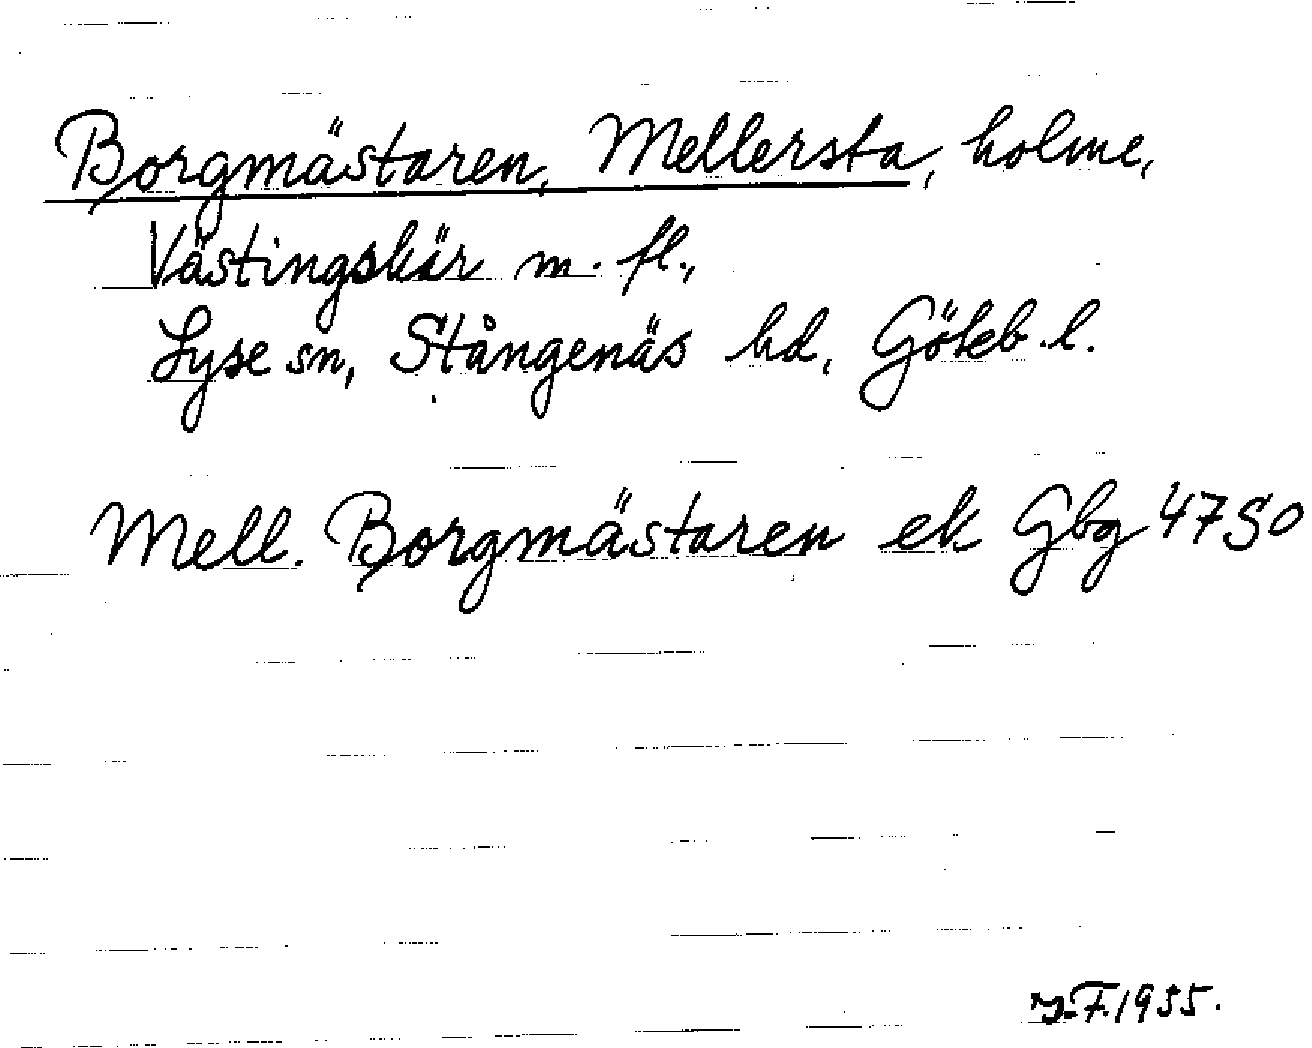 Borgmästaren, Mellersta, holme,
Västingskär m. fl.,
Lyse sn, Stångenäs hd, Göteb. l.
Mell. Borgmästaren ek Gbg 4750
F. 1955.